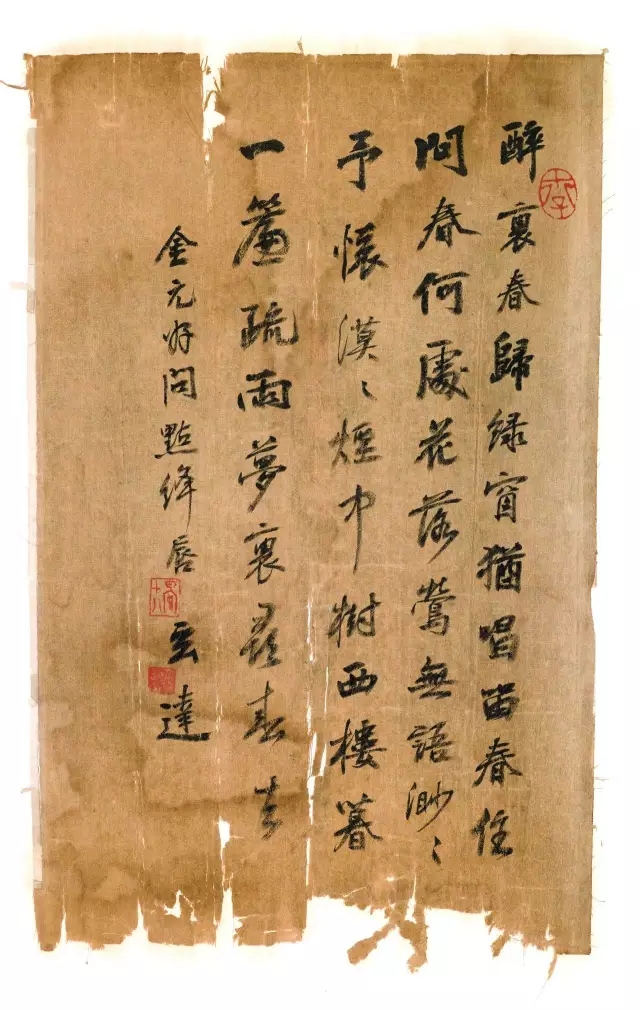 醉裏春歸緑窗猶唱畱春住
問春何處花落鶯無語渺〻
予懷漠〻煙中樹西樓暮
一簾疏雨夢裏尋春去
金元好問點絳唇
達
李